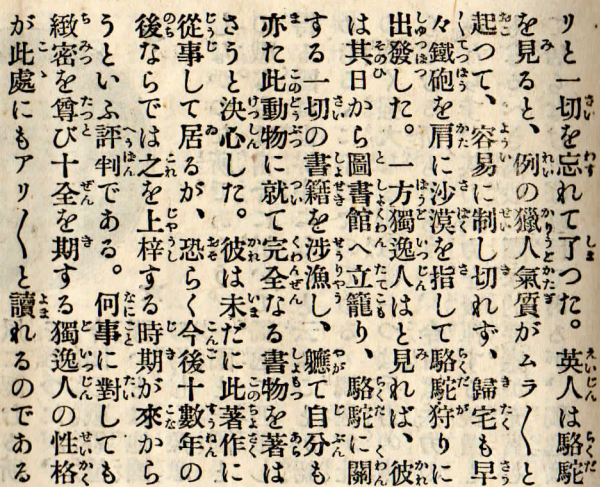 リと一切を忘れて了つた。英人は駱駝
を見ると、例の獵人氣質がムラ〱と
起つて、容易に制し切れず、歸宅も早
々鐵砲を肩に沙漠を指して駱駝狩りに
出發した。一方獨逸人はと見れば、彼
は其日から圖書館へ立籠り、駱駝に關
する一切の書籍を渉漁し、軈て自分も
亦た此動物に就て完全なる書物を著は
さうと決心した。彼は未だに此著作に
從事して居るが、恐らく今後十數年の
後ならでは之を上梓する時期が來から
うといふ評判である。何事に對しても
緻密を尊び十全を期する獨逸人の性格
が此處にもアリ〱と讀れるのである